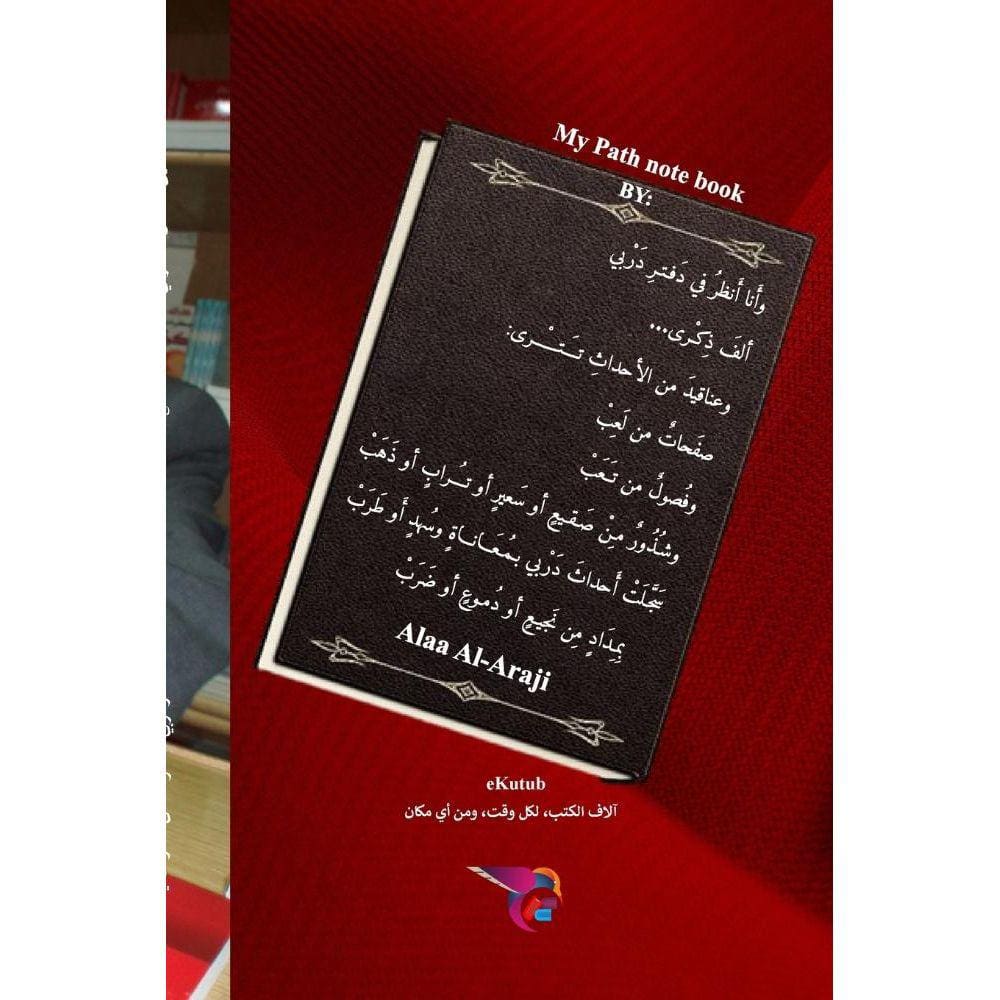 My Path note book
BY:
وأَنا أَنظرُ في دَفترِ دَرْبي
ألفَ ذِكْرى...
وعناقيدَ من الأحداثِ تَـتــْـرى:
صفَحاتٌ من لَعِبْ
وفُصولٌ من تـَعَبْ
وشُذُورٌ مِنْ صَقيعٍ أو سَعيرٍ أو تـُرابٍ أو ذَهَبْ
سَجَّلَتْ أَحداثَ دَرْبي بـمُعَـانـاةٍ وسُهدٍ أَو طَرَبْ
بِمِدَادٍ مِن نَجيعٍ أو دُموعٍ أو ضَرَبْ
Alaa Al-Araji
eKutub
آلاف الكتب، لكل وقت، ومن أي مكان